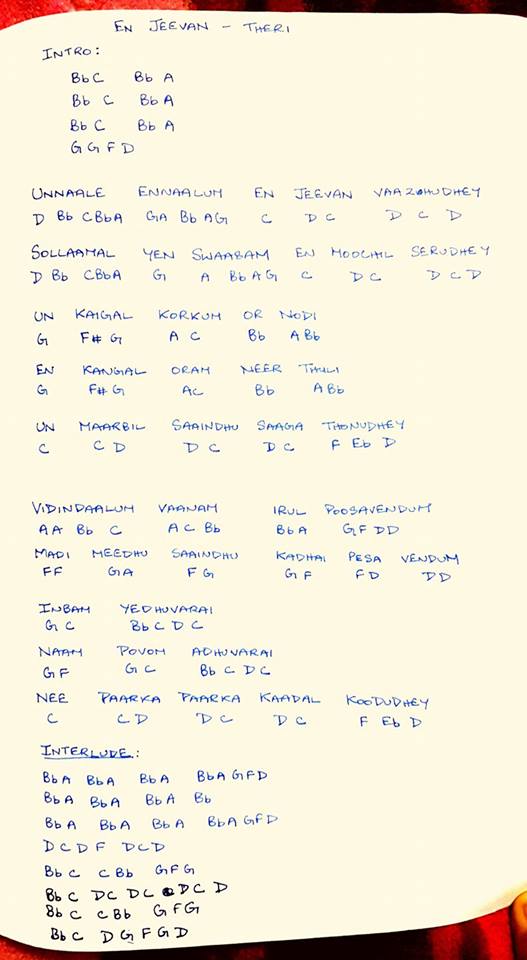 EN JEEVAN - THERI
INTRO:
Bb C Bb A
Bb C Bb A
Bb C Bb A
G G F D
UNNAALE ENNAALUM EN JEEVAN VAAZHUDHEY
D Bb C Bb A G A Bb A G C D C D C D
SOLLAAMAL YEN SWAABAM EN MOOCHIL SERUDHEY
D Bb C Bb A G A Bb A G C D C D C D
UN KAIGAL KORKUM OR NODI
G F# G A C Bb A Bb
EN KANGAL ORAM NEER THULI
G F# G A C Bb A Bb
UN MAARBIL SAAINDHU SAAGA THONUDHEY
C C D D C D C F Eb D
VIDINDAALUM VAANAM IRUL POOSAVENDUM
A A Bb C A C Bb Bb A G F D D
MADI MEEDHU SAAINDHU KADHAI PESA VENDUM
F F G A F G G F F D D D
INBAM YEDHUVARAI
G C Bb C D C
NAAM POVOM ADHUVARAI
G F G C Bb C D C
NEE PAARKA PAARKA KAADAL KOODUDHEY
C C D D C D C F Eb D
INTERLUDE:
Bb A Bb A Bb A Bb A G F D
Bb A Bb A Bb A Bb
Bb A Bb A Bb A Bb A G F D
D C D F D C D
Bb C C Bb G F G
Bb C D C D C D C D
Bb C C Bb G F G
Bb C D G F G D